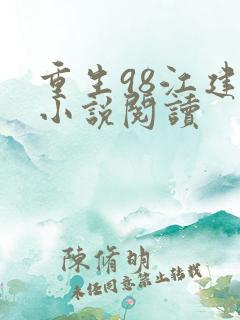 重生98江建
小說閱讀
陳脩明
未経同意禁止转载